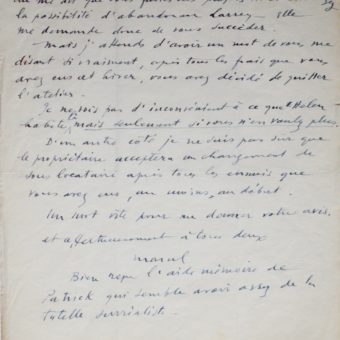 la possibilité d'abandonner Larrey – elle
me demande donc de vous succéder.
– Mais j'attends d'avoir un mot de vous me
disant si vraiment, après tous les frais que vous
avez eus cet hiver, vous avez décidé de quitter
l'atelier.
Je ne vois pas d'inconvénient à ce que Helen
habite, mais seulement si vous n'en voulez plus.
D'un autre côté je ne suis pas sûr que
le propriétaire acceptera un changement de
sous locataire après tous les ennuis que
vous avez eus, au moins, au début.
Un mot vite pour me donner votre avis.
et affectueusement à tous deux
Marcel
Bien reçu l'aide mémoire de
Patrick qui semble avoir assez de la
tutelle surréaliste.